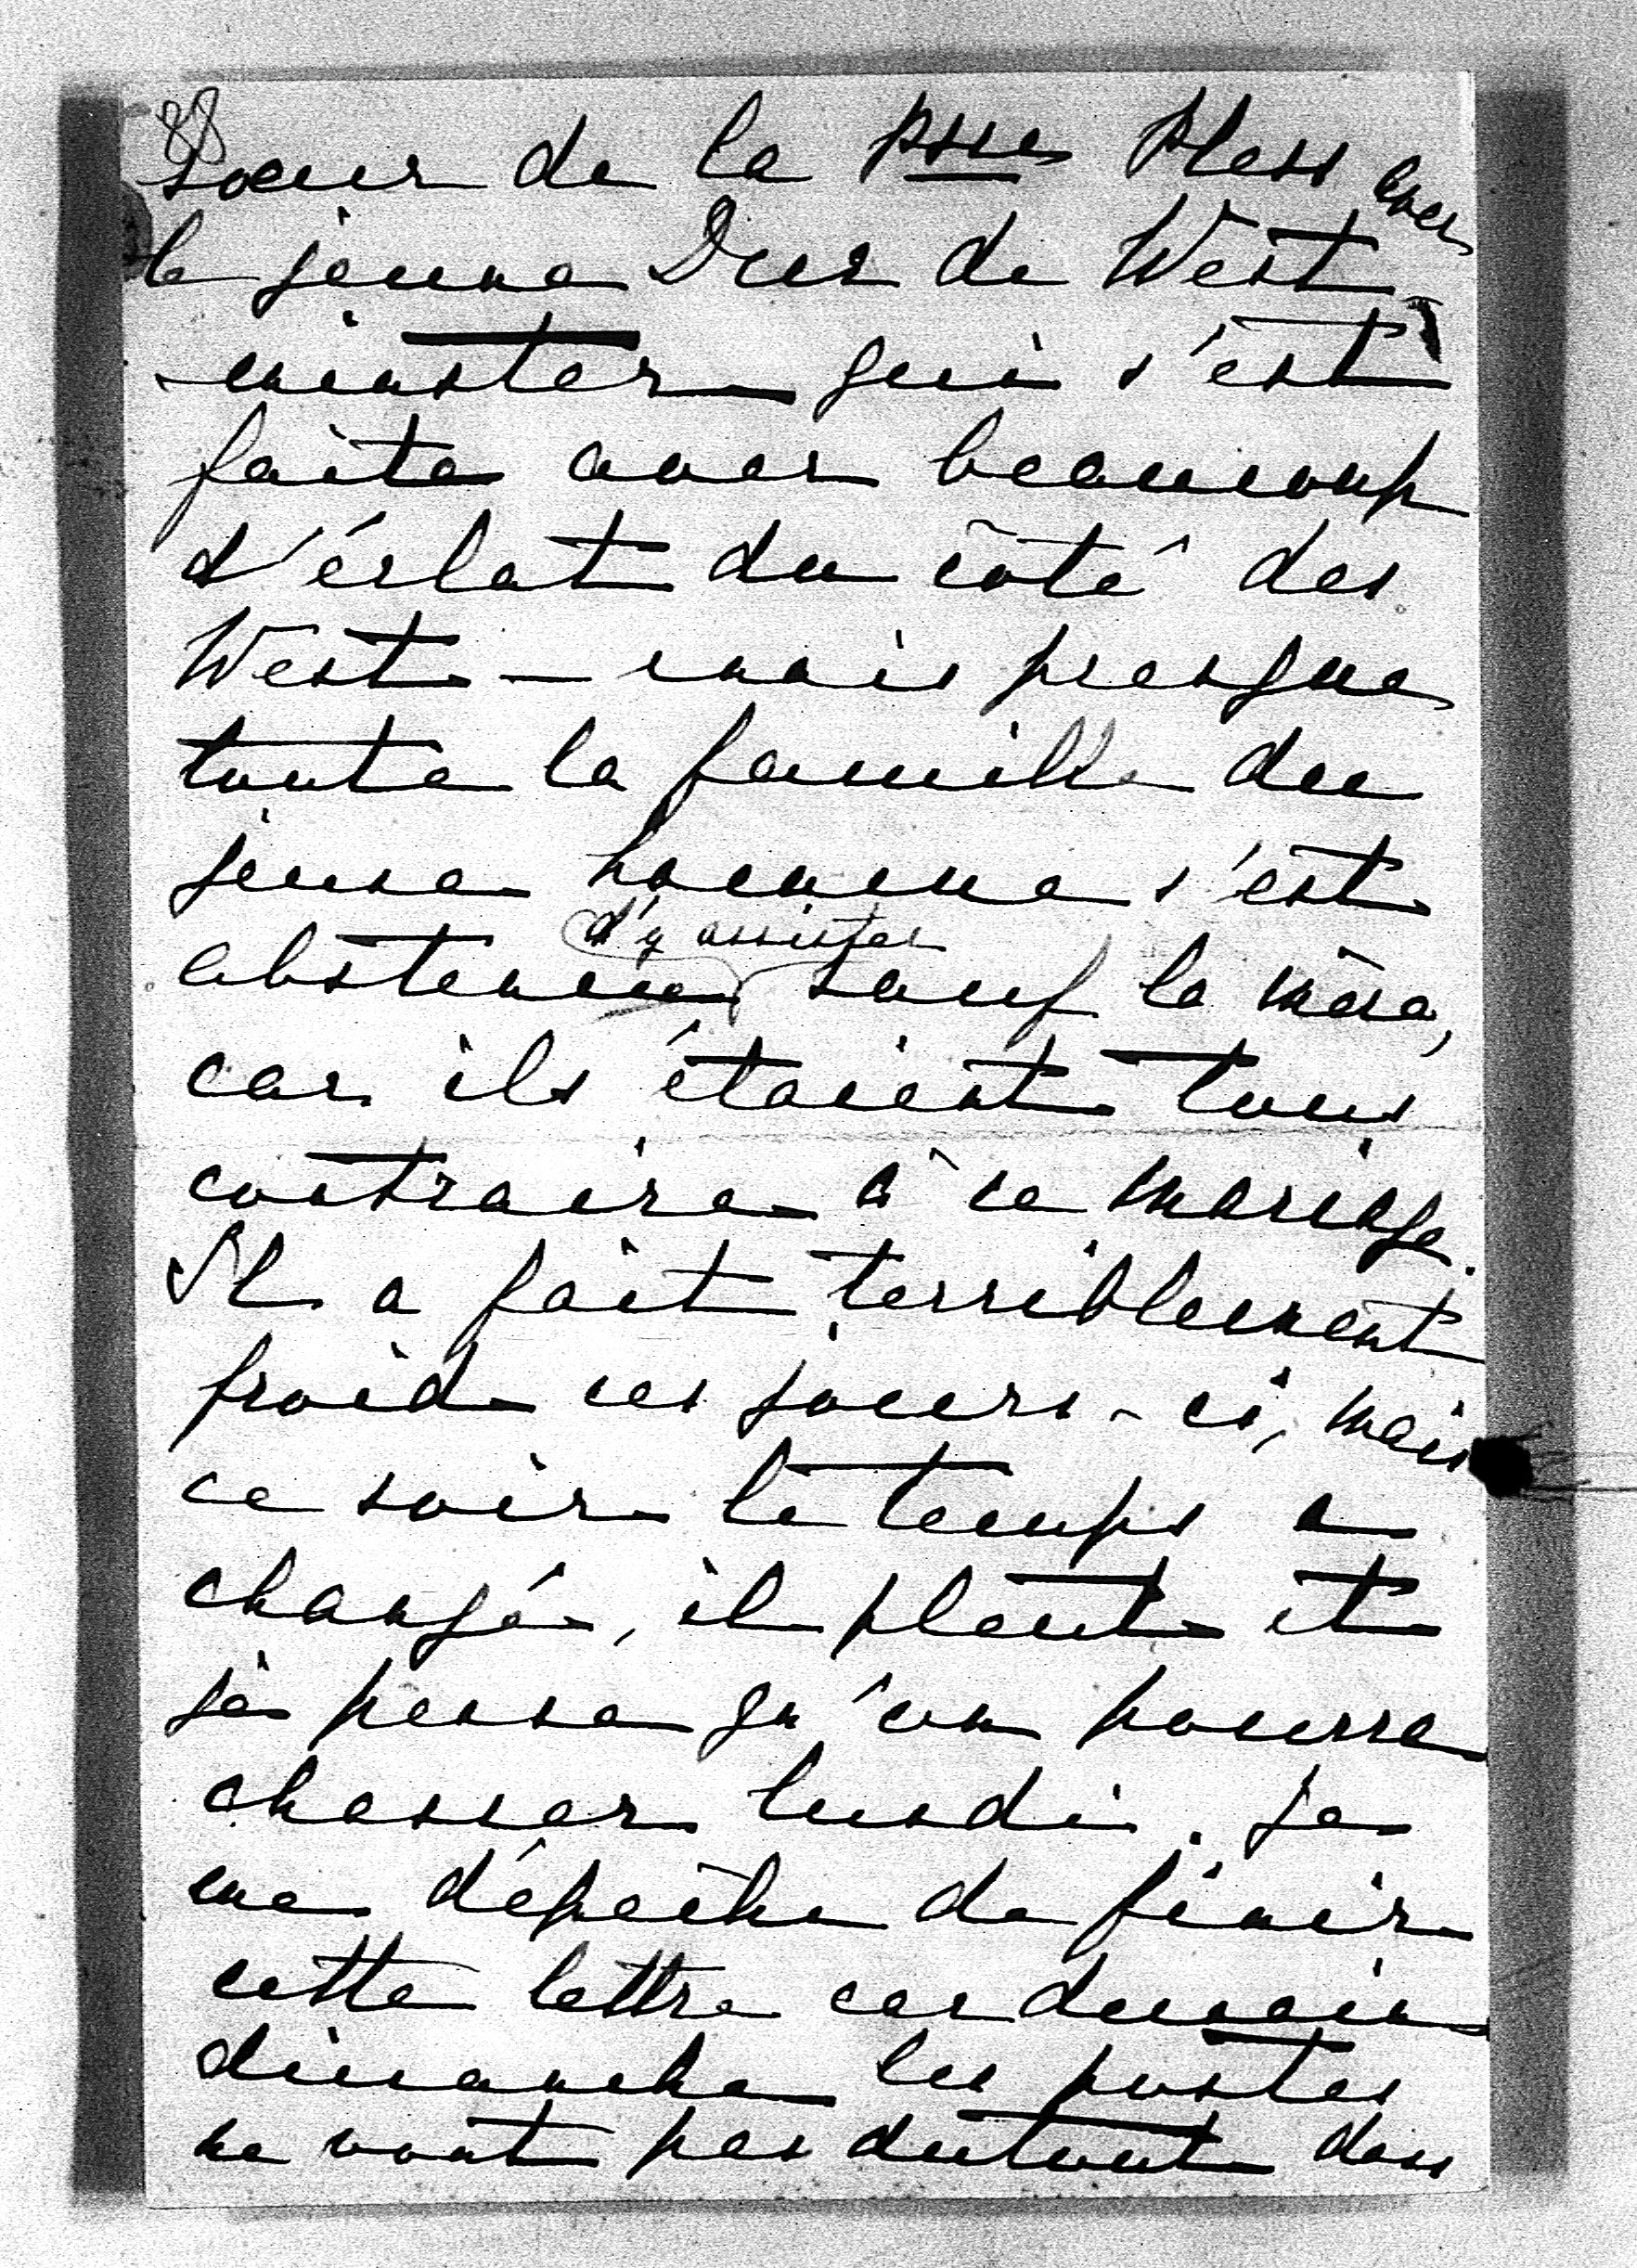 88
sœur de la psse Pless avec
le jeune Duc de West
-minster qui s'est
faite avec beaucoup
d'éclat du côté des
West – mais presque
toute la famille du
jeune homme s'est
d'y assister
abstenue sauf la mère,
car ils étaient tous
contraire à ce mariage.
Il a fait terriblement
froid ces jours-ci, mais
ce soir le temps a
changé, il pleut et
je pense qu'on pourra
chasser lundi. Je
me dépêche de finir
cette lettre car demain
dimanche les postes
ne vont pas du tout dans